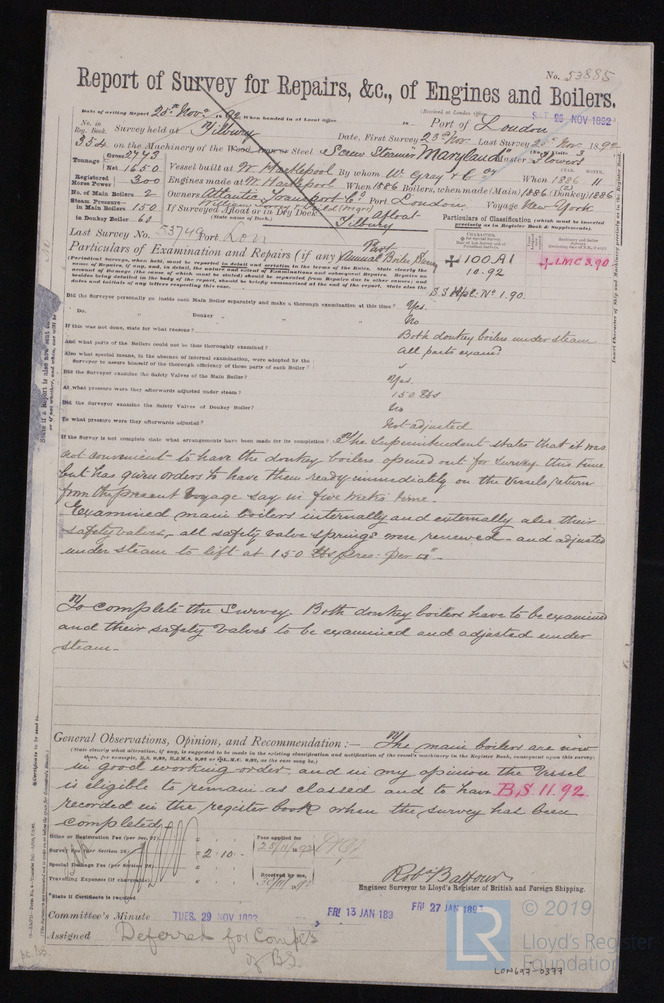 No. 53885
Report of Survey for Repairs, &c., of Engines and Boilers.
Date of writing Report 25th Novr 1892 When handed in at Local Office
(Received at London Office
SAT. 26 NOV 1892
No. in Reg. Book. Survey held at Tilbury Port of London
354 Date, First Survey 23rd Nov Last Survey 25th Nov 1892
on the Machinery of the Wood, Iron or Steel Screw Steamer "Maryland" Master Flowers
Tonnage Gross 2743 Net 1650
Vessel built at W. Hartlepool By whom W. Gray & Co Ld When 1886 11
Registered Horse Power 300 Engines made at W. Hartlepool When 1886 Boilers, when made (Main) 1886 (Donkey) 1886
No. of Main Boilers 2 Owners Atlantic Transport Co. Port London Voyage New York
Steam Pressure in Main Boilers 150
in Donkey Boiler 60
If Surveyed Afloat or in Dry Dock Afloat
(State name of Dock.) Tilbury
Particulars of Classification (which must be inserted precisely as in Register Book & Supplements).
Last Survey No. 53749 Port Lon
Particulars of Examination and Repairs (if any) Part Annual Boiler Survey
100A1
10.92
L.M.C 3.90
B.S. Apl. No 1.90.
Did the Surveyor personally go inside each Main Boiler separately and make a thorough examination at this time? Yes.
Do. Donkey " " " No
If this was not done, state for what reasons? Both donkey boilers under steam
And what parts of the Boilers could not be thoroughly examined? All parts examd
Also what special means, in the absence of internal examination, were adopted by the
Surveyor to assure himself of the thorough efficiency of those parts of each Boiler?
Did the Surveyor examine the Safety Valves of the Main Boiler? Yes.
At what pressure were they afterwards adjusted under steam? 150 lbs
Did the Surveyor examine the Safety Valves of Donkey Boiler? No
To what pressure were they afterwards adjusted? Not adjusted
If the Survey is not complete state what arrangements have been made for its completion? The Superintendent states that it was
not convenient to have the donkey boilers opened out for survey this time
but has given orders to have them ready immediately on the Vessels return
from the present Voyage say in five weeks time.
Examined main boilers internally and externally also their
safety valves, all safety valve springs were renewed and adjusted
under steam to lift at 150 lbs pres. per □".
To complete the Survey. Both donkey boilers have to be examined
and their safety valves to be examined and adjusted under
steam.
General Observations, Opinion, and Recommendation :— The main boilers are now
(State clearly what alteration, if any, is suggested to be made in the existing classification and notification of the vessel's machinery in the Register Book, consequent upon this survey:
in good working order and in my opinion the Vessel
is eligible to remain as classed and to have B.S 11.92
recorded in the register book when the survey has been
completed.
Office or Registration Fee (per Sec. 27)
Survey Fee (per Section 28) 2.10
Special Damage Fee (per Section 28)
Travelling Expenses (if chargeable)
Fees applied for
25/11/92
Received by me,
Robt Balfour
Engineer Surveyor to Lloyd's Register of British and Foreign Shipping.
*State if Certificate is required
Committee's Minute TUES. 29 NOV 1892 FRI 13 JAN 189 FRI 27 JAN 189
Assigned Deferred for Compn
of B.S.
© 2019
LR
Lloyd's Register
Foundation
LON697-0377